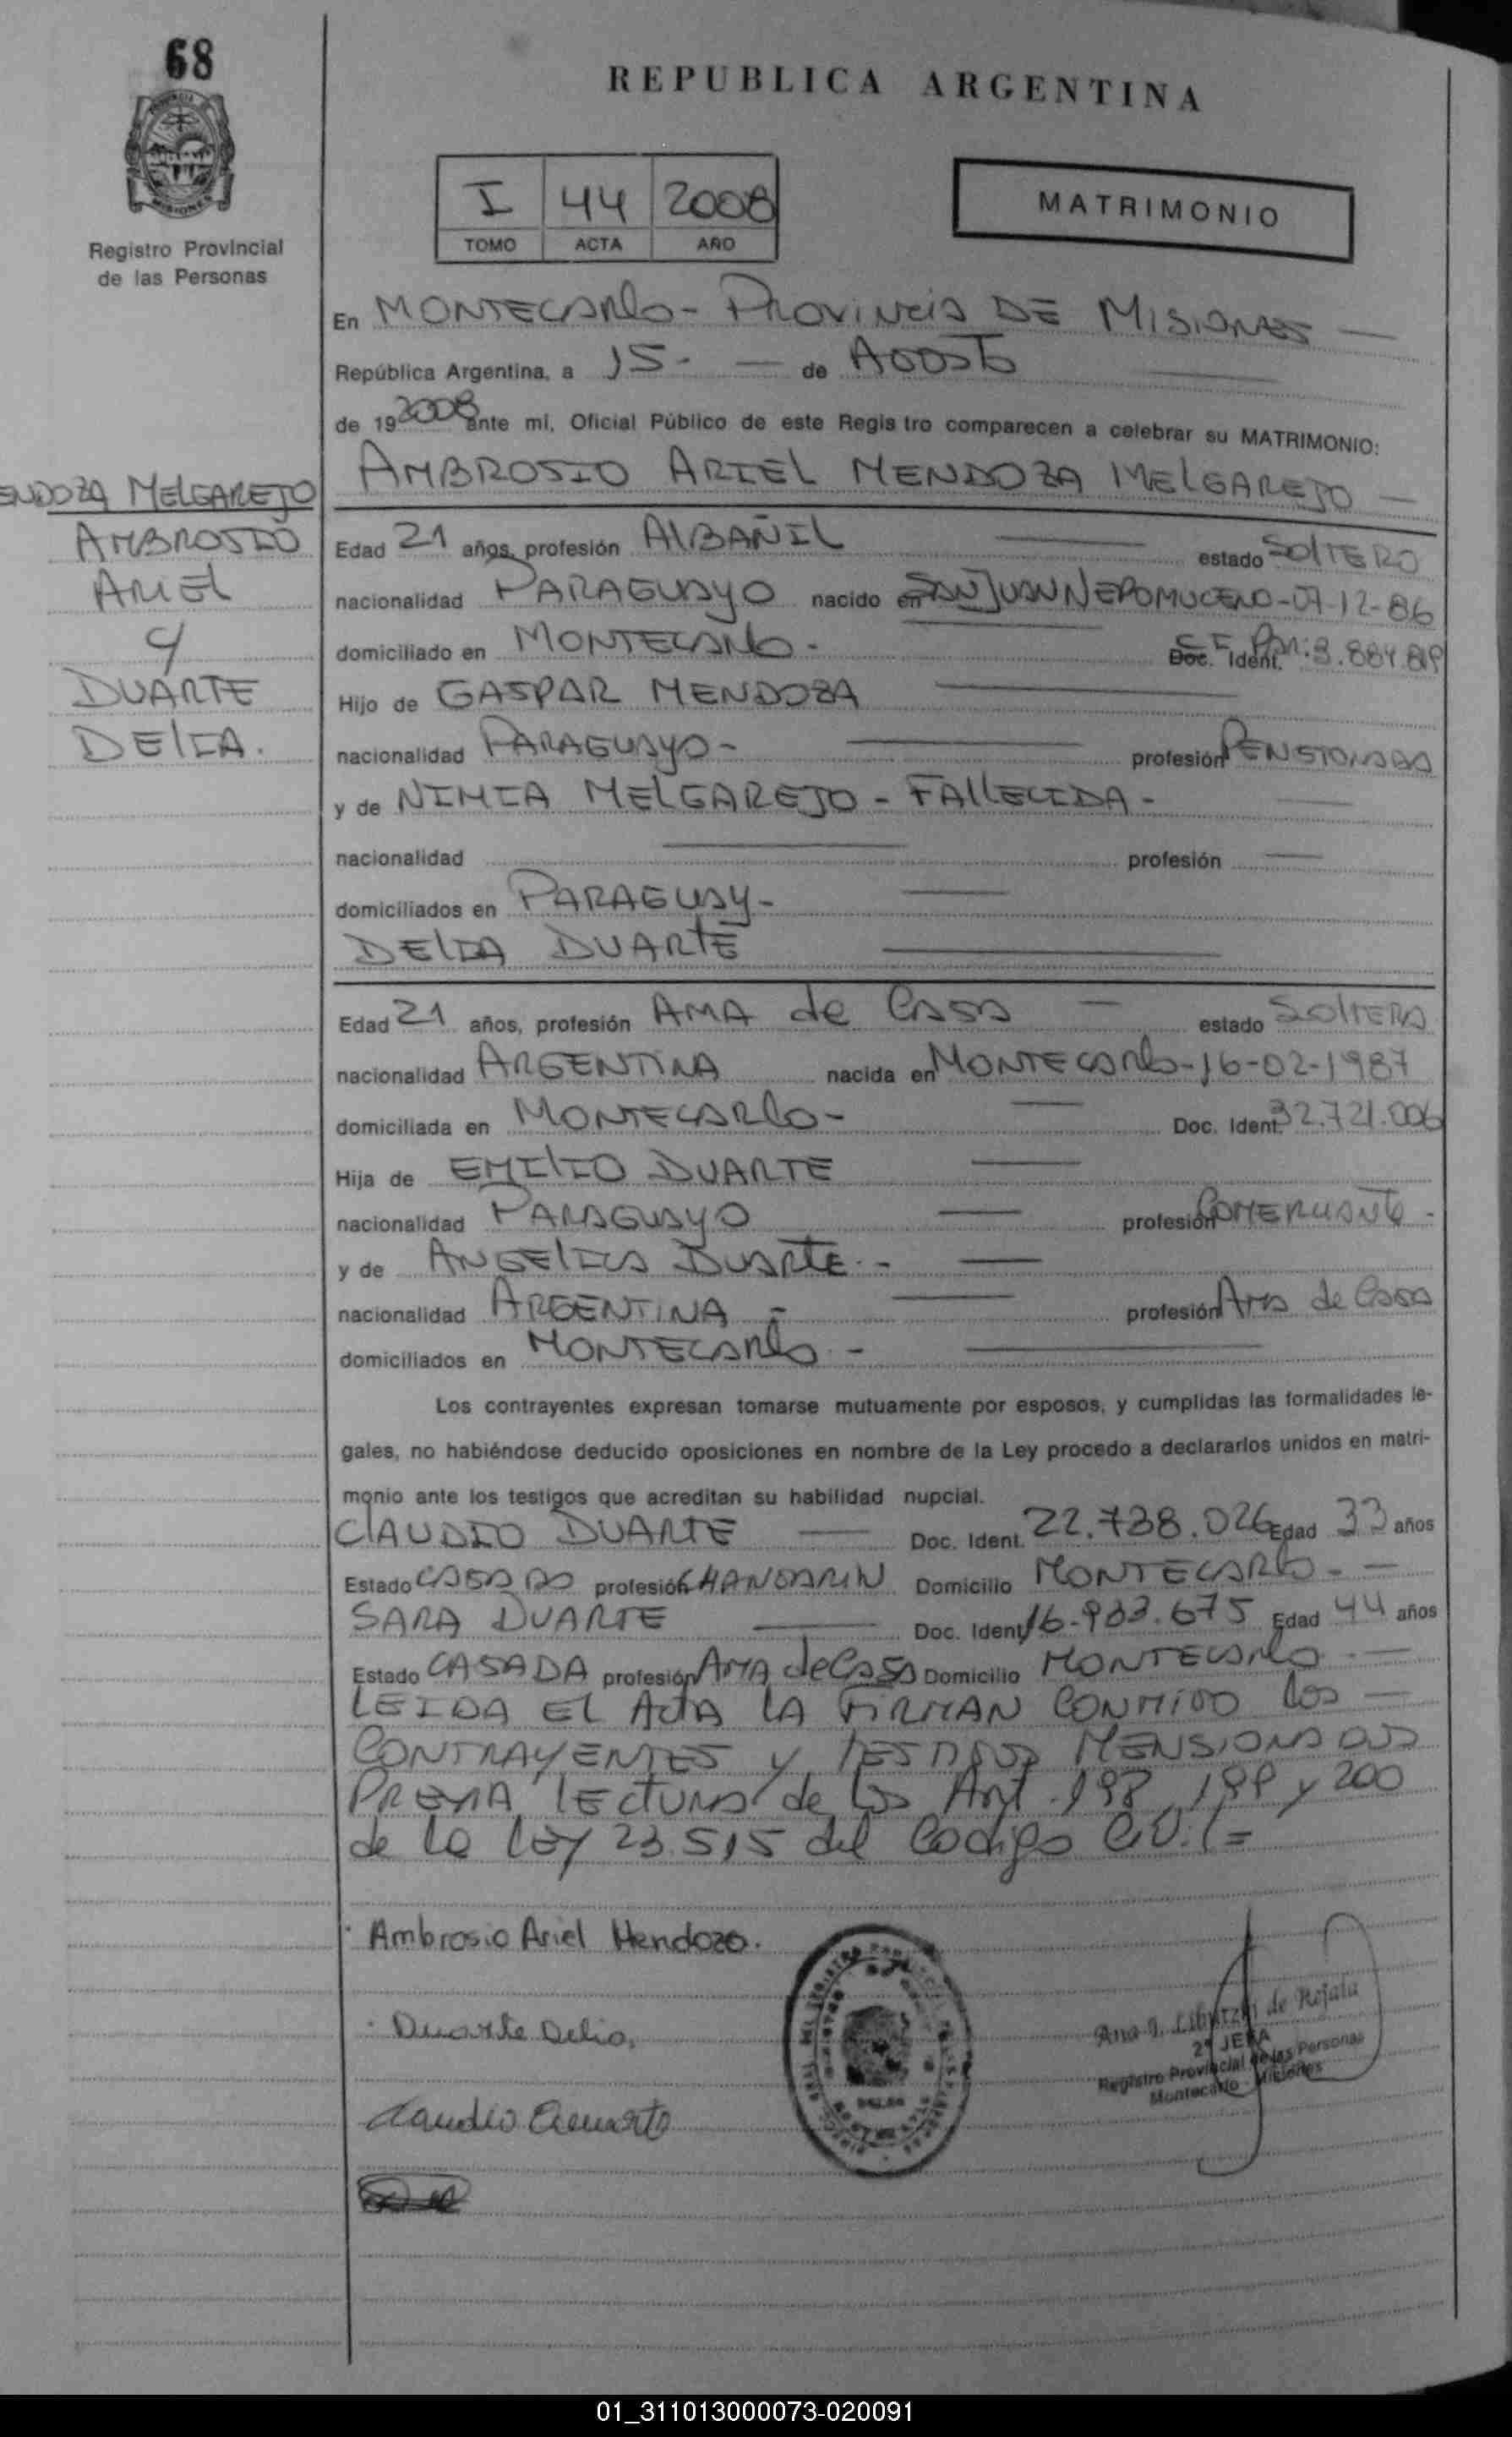 68
REPUBLICA ARGENTINA
Registro Provincial
de las Personas
I 44 2008
TOMO ACTA AÑO
MATRIMONIO
En MONTECARLO - PROVINCIA DE MISIONES —
República Argentina, a 15 - — de AGOSTO
de 19 2008 ante mi, Oficial Público de este Regis tro comparecen a celebrar su MATRIMONIO:
AMBROSIO ARIEL MENDOZA MELGAREJO —
ENDOZA MELGAREJO
AMBROSIO
ARIEL
y
DUARTE
DELIA.
Edad 21 años, profesión ALBAÑIL — estado SOLTERO
nacionalidad PARAGUAYO nacido en SAN JUAN NEPOMUCENO - 07-12-86
domiciliado en MONTECARLO - Doc. Ident. 3.884.819
Hijo de GASPAR MENDOZA —
nacionalidad PARAGUAYO - — profesión PENSIONADO
y de NIMIA MELGAREJO - FALLECIDA - —
nacionalidad — profesión —
domiciliados en PARAGUAY - —
DELIA DUARTE —
Edad 21 años, profesión AMA de CASA — estado SOLTERA
nacionalidad ARGENTINA nacida en MONTECARLO - 16-02-1987
domiciliada en MONTECARLO - — Doc. Ident. 32.721.006
Hija de EMILIO DUARTE —
nacionalidad PARAGUAYO — profesión COMERCIANTE -
y de ANGELICA DUARTE - —
nacionalidad ARGENTINA - — profesión AMA de CASA
domiciliados en MONTECARLO - —
Los contrayentes expresan tomarse mutuamente por esposos, y cumplidas las formalidades le-
gales, no habiéndose deducido oposiciones en nombre de la Ley procedo a declararlos unidos en matri-
monio ante los testigos que acreditan su habilidad nupcial.
CLAUDIO DUARTE — Doc. Ident. 22.738.026 Edad 33 años
Estado CASADO profesión CHANGARIN Domicilio MONTECARLO - —
SARA DUARTE — Doc. Ident. 16.903.675 Edad 44 años
Estado CASADA profesión AMA de CASA Domicilio MONTECARLO - —
LEIDA EL ACTA LA FIRMAN CONMIGO los —
CONTRAYENTES y TESTIGOS MENSIONADOS
PREVIA LECTURA de los Art. 198, 199 y 200
de la LEY 23.515 del Codigo Civil =
Ambrosio Ariel Mendoza.
Duarte Delia.
Claudio Duarte
Ana I. de Rejala
2ª JEFA
Registro Provincial de las Personas
Montecarlo - Misiones
01_311013000073-020091